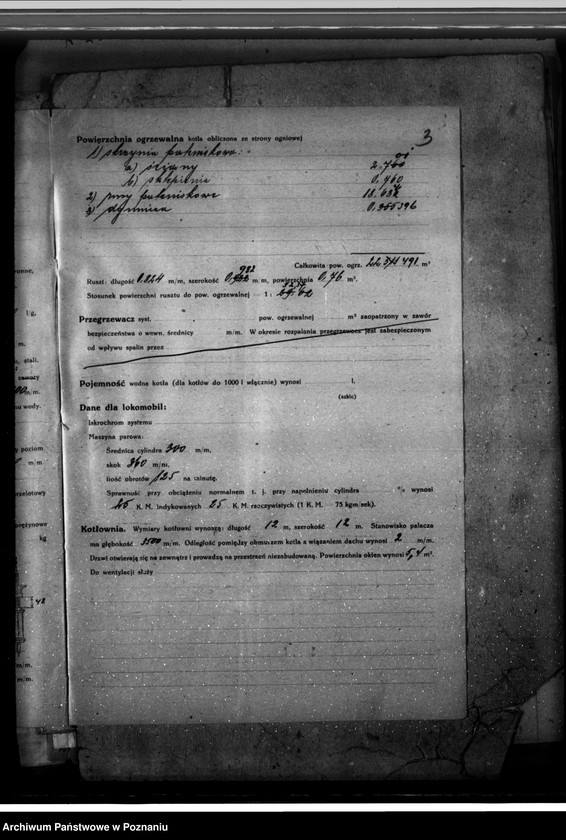 3
Powierzchnia ogrzewalna kotła obliczona ze strony ogniowej
1) skrzynia paleniskowa:
a) ściany 2.760
b) sklepienie 0.460
2) rury paleniskowe
3) dymnica 0.355396
Całkowita pow. ogrz. m²
Ruszt: długość 0.824 m/m, szerokość 0, 982 m/m, powierzchnia 0,76 m².
Stosunek powierzchni rusztu do pow. ogrzewalnej — 1 :
Przegrzewacz syst. pow. ogrzewalnej m² zaopatrzony w zawór
bezpieczeństwa o wewn. średnicy m/m. W okresie rozpalania przegrzewacz jest zabezpieczonym
od wpływu spalin przez
Pojemność wodna kotła (dla kotłów do 1000 l włącznie) wynosi l.
(szkic)
Dane dla lokomobil:
Iskrochrom systemu
Maszyna parowa:
Średnica cylindra 300 m/m,
skok 360 m/m,
ilość obrotów 125 na minutę.
Sprawność przy obciążeniu normalnem t. j. przy napełnieniu cylindra % wynosi
K. M. indykowanych 25 K. M. rzeczywistych (1 K. M. 75 kgm/sek).
Kotłownia. Wymiary kotłowni wynoszą: długość 12 m, szerokość 12 m. Stanowisko palacza
ma głębokość 3500 m/m. Odległość pomiędzy obmurzem kotła a wiązaniem dachu wynosi 2 m/m.
Drzwi otwierają się na zewnątrz i prowadzą na przestrzeń niezabudowaną. Powierzchnia okien wynosi 5,4 m².
Do wentylacji służy
Archiwum Państwowe w Poznaniu